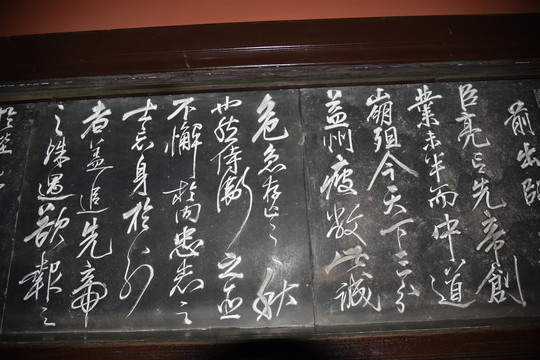 前出師
臣亮言先帝創
業未半而中道
崩殂今天下三分
益州疲敝此誠
危急存亡之秋
也然侍衛之臣
不懈於內忠志之
士忘身於外
者蓋追先帝
之殊遇欲報之